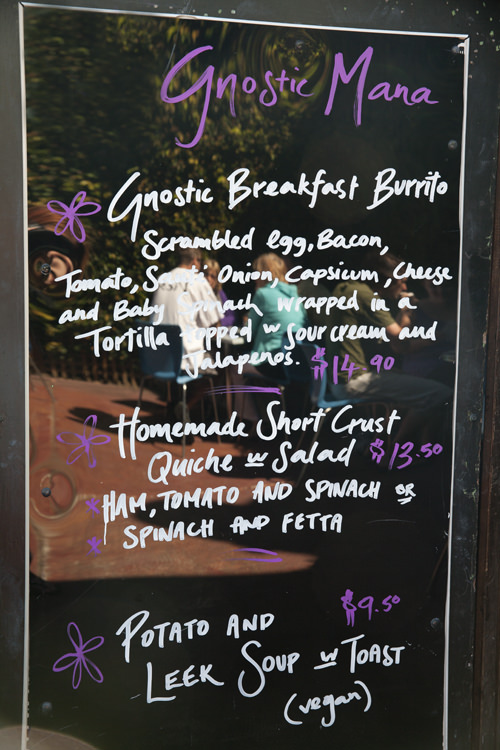 Gnostic Mana
Gnostic Breakfast Burrito
Scrambled egg, Bacon,
Tomato, Sauté Onion, Capsicum, Cheese
and Baby Spinach wrapped in a
Tortilla topped w sour cream and
Jalapenos. $14.90
Homemade Short Crust
Quiche w Salad $13.50
HAM, TOMATO AND SPINACH OR
SPINACH AND FETTA
$9.50
POTATO AND
LEEK SOUP w TOAST
(vegan)